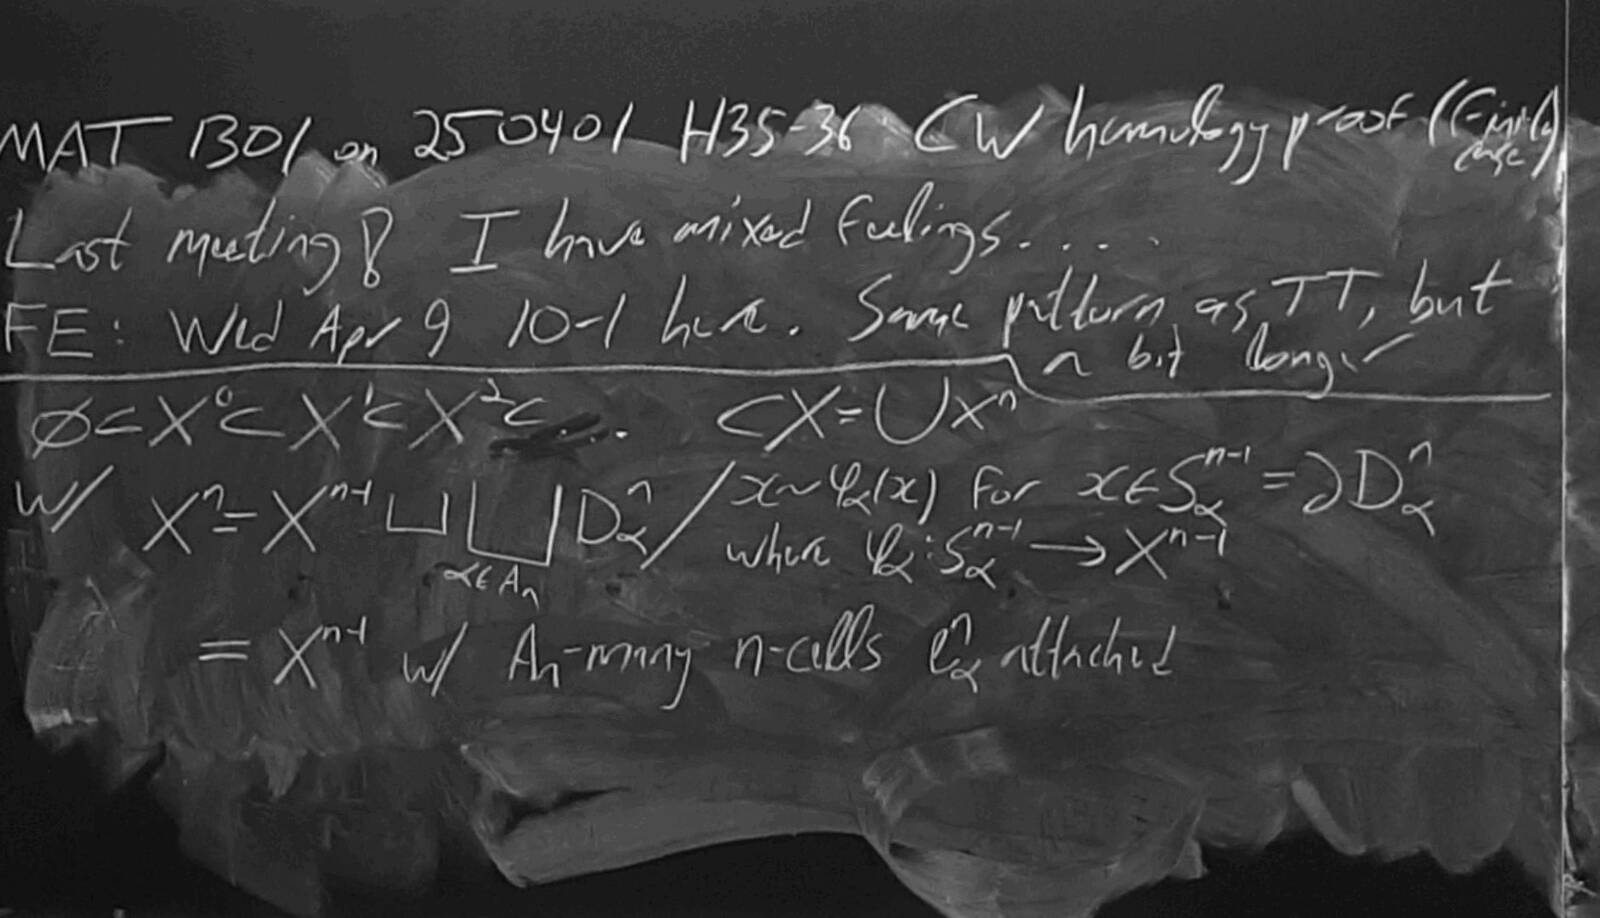 MAT 1301 on 250401 H35-36 CW homology proof (finite case)
Last meeting! I have mixed feelings....
FE: Wed Apr 9 10-1 here. Same pattern as TT, but
a bit longer
∅⊂X⁰⊂X¹⊂X²⊂.... ⊂X=∪Xⁿ
w/ Xⁿ=Xⁿ⁻¹ ⊔ ⊔_{α∈Aₙ} D_α^n / x~φ_α(x) for x∈S_α^{n-1}=∂D_α^n
where φ_α:S_α^{n-1}→X^{n-1}
= X^{n-1} w/ Aₙ-many n-cells e_α^n attached